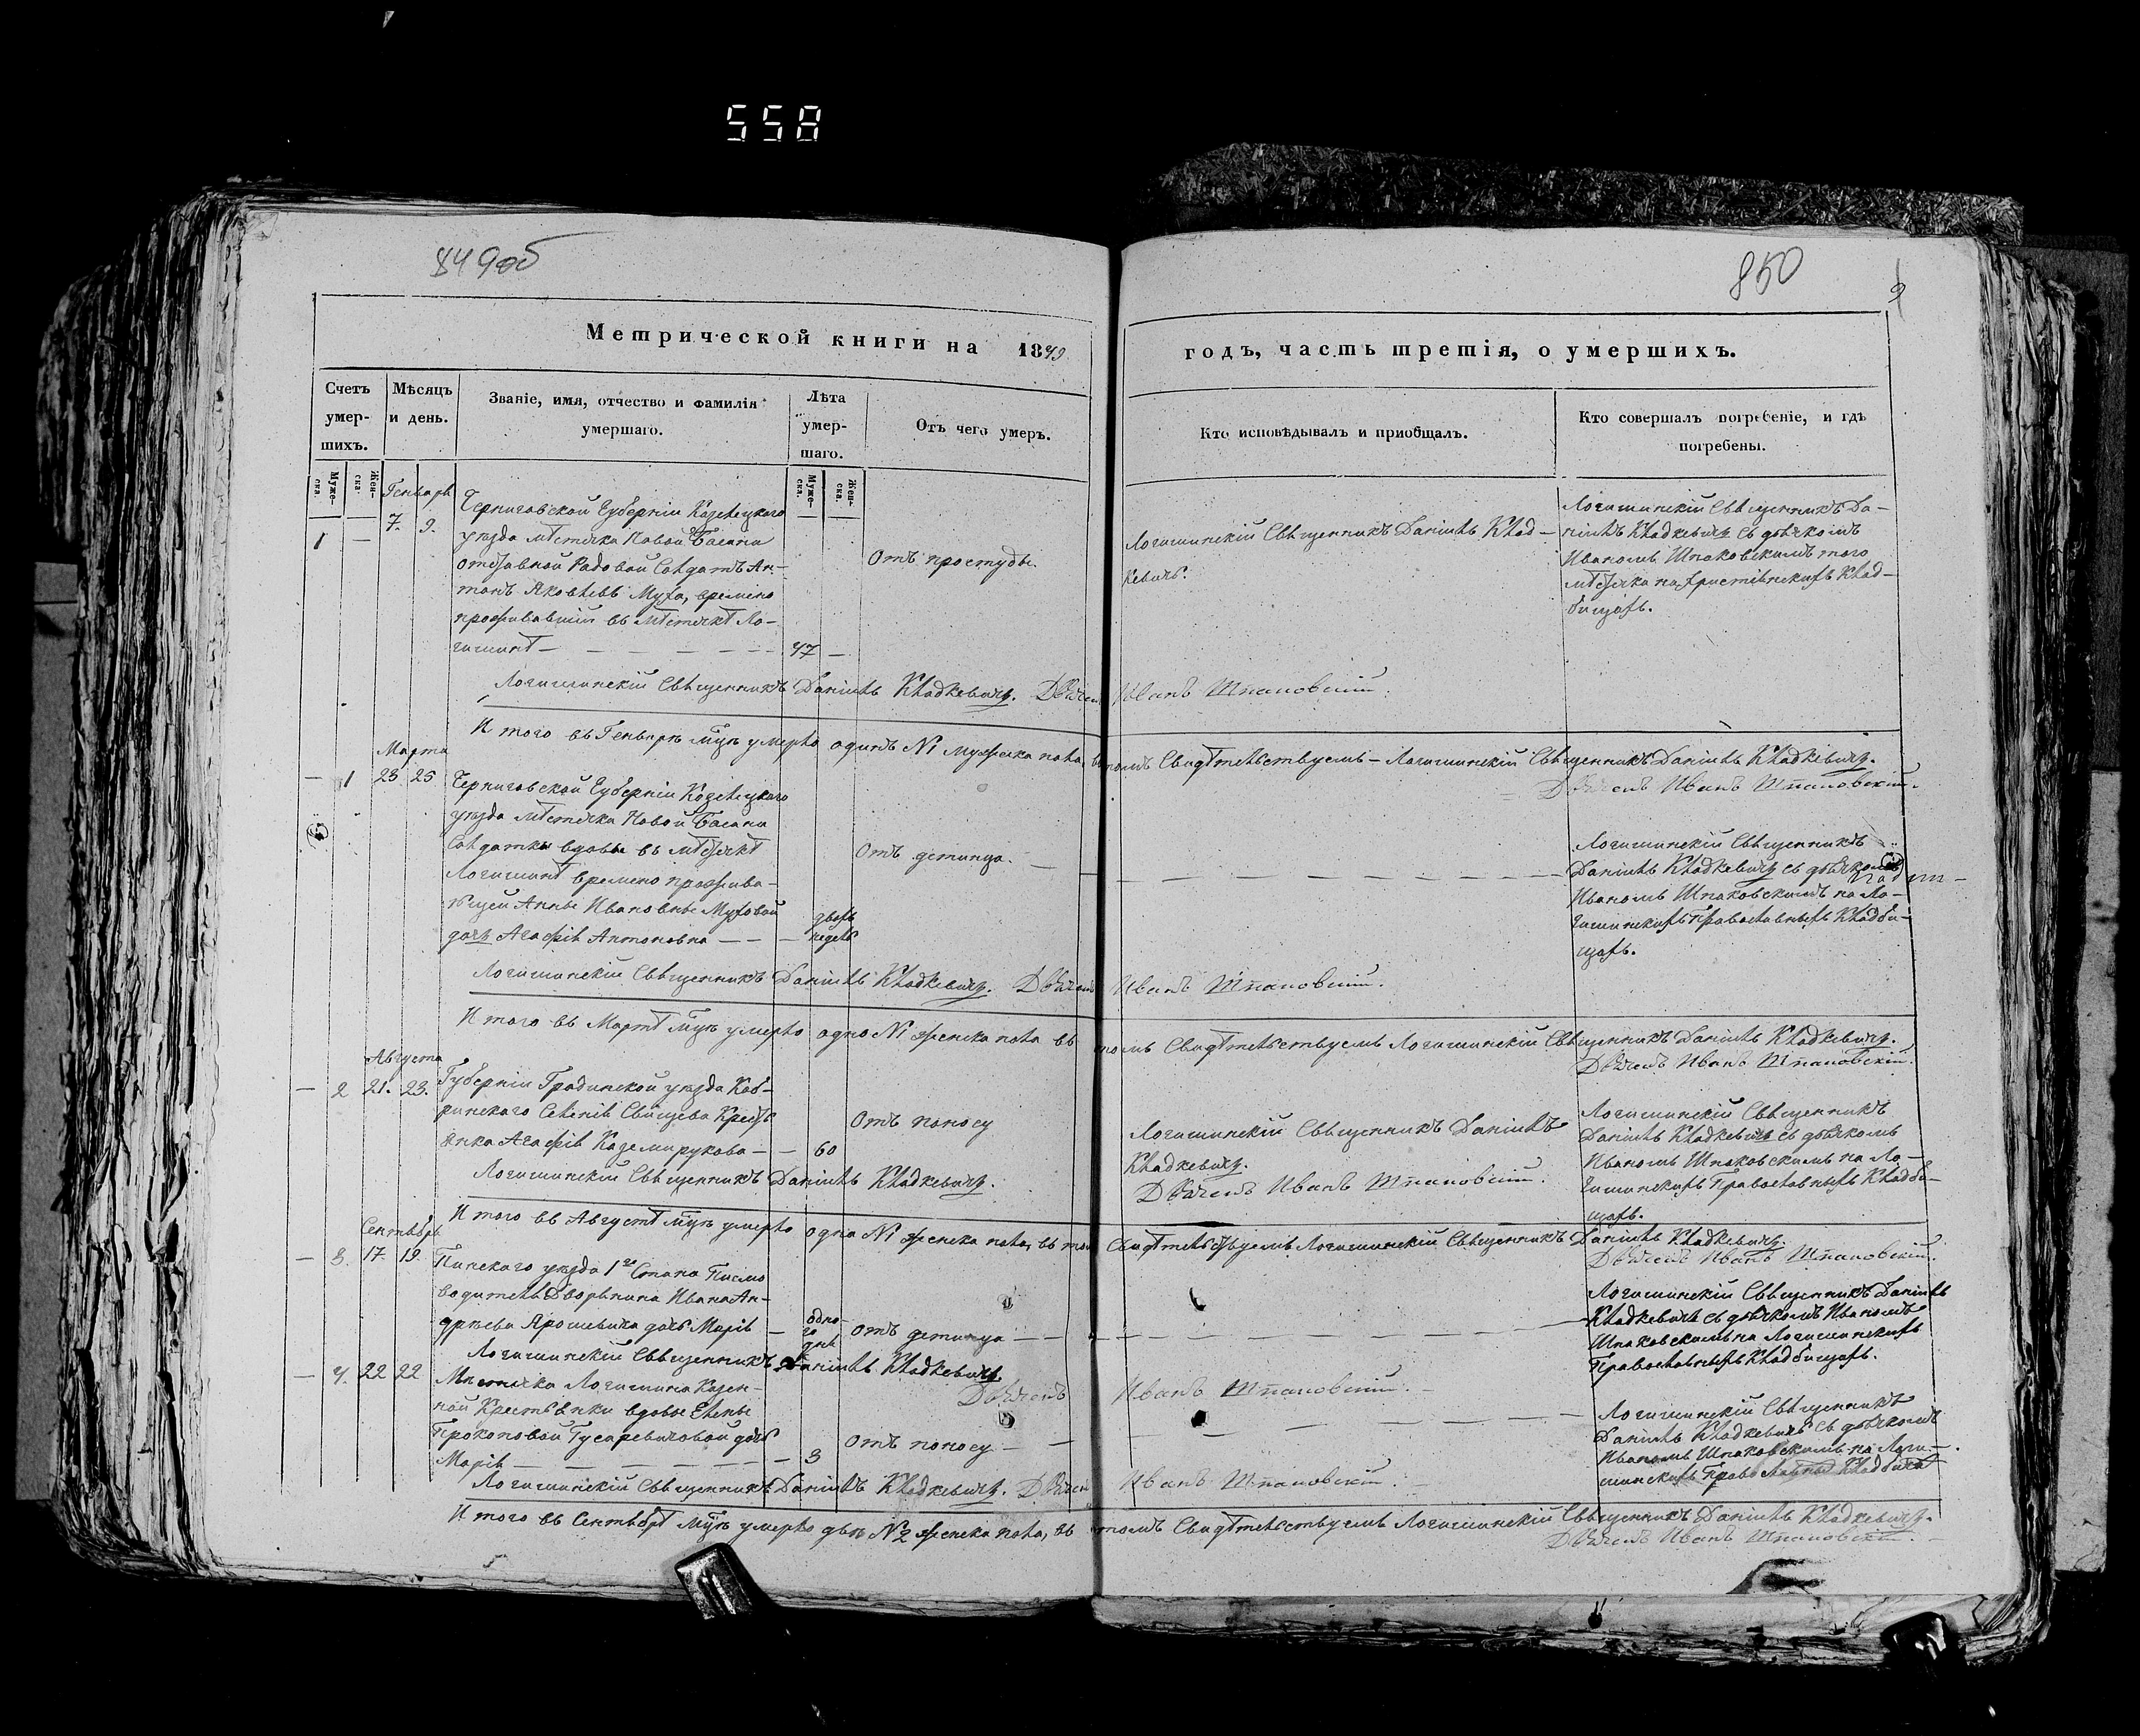 558
849об
850
9
Метрической книги на 1849
годъ, часть третія, о умершихъ.
Счетъ умер-шихъ.
Мѣсяцъ и день.
Званіе, имя, отчество и фамилія умершаго.
Лѣта умер-шаго.
Отъ чего умеръ.
Кто исповѣдывалъ и приобщалъ.
Кто совершалъ погребеніе, и гдѣ погребены.
Муже-ска.
Жен-ска.
Муже-ска.
Жен-ска.
Генварь
1 — 7. 9.
Черниговской Губерніи Козелецкаго
уѣзда мѣстечка Новой Басани
отставной Рядовой Солдатъ Ан-
тонъ Яковлевъ Муха, времено
проживавшій въ мѣстечкѣ Ло-
гишинѣ — 47 —
Отъ простуды.
Логишинскій Священникъ Даніилъ Клад-
кевичъ.
Логишинскій Священникъ Да-
ніилъ Кладкевичъ съ дьячкомъ
Иваномъ Шпаковскимъ того
мѣстечка на христіянскихъ Клад-
бищахъ.
Логишинскій Священникъ Даніилъ Кладкевичъ. Дьячекъ Иванъ Шпаковскій.
И того въ Генварѣ м̃цѣ умерло одинъ №1 мужеска пола, въ томъ Свидѣтельствуемъ — Логишинскій Священникъ Даніилъ Кладкевичъ.
Дьячекъ Иванъ Шпаковскій.
Марта
— 1 23 25
Черниговской Губерніи Козелецкаго
уѣзда мѣстечка Новой Басани
Солдатки вдовы въ мѣстечкѣ
Логишинѣ времено прожива-
ющей Анны Ивановны Муховой
дочь Агафія Антоновна — — —
двухъ
недель
Отъ детинца. —
Логишинскій Священникъ
Даніилъ Кладкевичъ съ дьячкомъ
Иваномъ Шпаковскимъ на Ло-
гишинскихъ Православныхъ Кладби-
щахъ.
Логишинскій Священникъ Даніилъ Кладкевичъ. Дьячекъ Иванъ Шпаковскій.
И того въ Мартѣ м̃цѣ умерло одно №1 женска пола въ томъ Свидѣтельствуемъ Логишинскій Священникъ Даніилъ Кладкевичъ.
Дьячекъ Иванъ Шпаковскій.
Августа
— 2 21. 23.
Губерніи Гродинской уѣзда Коб-
ринскаго Селенія Свищева Кресть
янка Агафія Каземирукова — — 60
Отъ поносу
Логишинскій Священникъ Даніилъ
Кладкевичъ.
Логишинскій Священникъ
Даніилъ Кладкевичъ съ дьячкомъ
Иваномъ Шпаковскимъ на Ло-
гишинскихъ Православныхъ Кладби-
щахъ.
Логишинскій Священникъ Даніилъ Кладкевичъ.
Дьячекъ Иванъ Шпаковскій.
И того въ Августѣ м̃цѣ умерло одна №1 женска пола, въ томъ Свидѣтельствуемъ Логишинскій Священникъ Даніилъ Кладкевичъ.
Дьячекъ Иванъ Шпаковскій.
Сентябрь
— 3. 17. 19.
Пинскаго уѣзда 1го Стана Письмо
водителя Дворянина Ивана Ан-
дреева Ярошевича дочь Марія —
одно-
го
дня
Отъ детинца — —
Логишинскій Священникъ Даніилъ
Кладкевичъ съ дьячкомъ Иваномъ
Шпаковскимъ на Логишинскихъ
Православныхъ Кладбищахъ.
Логишинскій Священникъ Даніилъ Кладкевичъ.
Дьячекъ Иванъ Шпаковскій.
— 4. 22 22
Мѣстечка Логишина Казен-
ной Крестьянки вдовы Елены
Прокоповой Гусаревичовой дочь
Марія — — 3
Отъ поносу — —
Логишинскій Священникъ
Даніилъ Кладкевичъ съ дьячкомъ
Иваномъ Шпаковскимъ на Логи-
шинскихъ Православныхъ Кладбищахъ
Логишинскій Священникъ Даніилъ Кладкевичъ. Дьячекъ Иванъ Шпаковскій.
И того въ Сентябрѣ м̃цѣ умерло двѣ №2 женска пола, въ томъ Свидѣтельствуемъ Логишинскій Священникъ Даніилъ Кладкевичъ.
Дьячекъ Иванъ Шпаковскій.